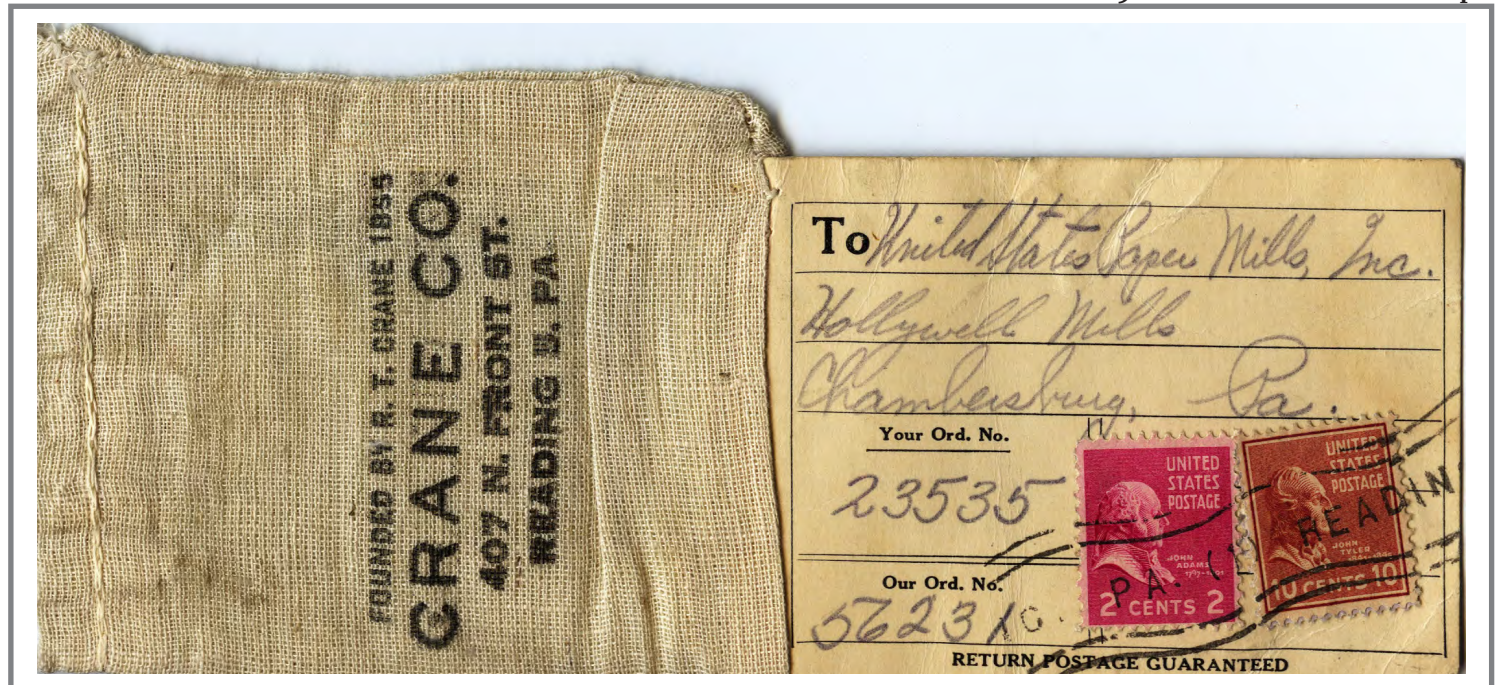 FOUNDED BY R. T. CRANE 1855
CRANE CO.
407 N. FRONT ST.
READING U. PA.
To United States Paper Mills, Inc.
Hollywell Mills
Chambersburg, Pa.
Your Ord. No.
23535
Our Ord. No.
56231
UNITED
STATES
POSTAGE
JOHN
ADAMS
1797-1801
2 CENTS 2
UNITED
STATES
POSTAGE
JOHN
TYLER
10 CENTS 10
READIN
PA.
RETURN POSTAGE GUARANTEED